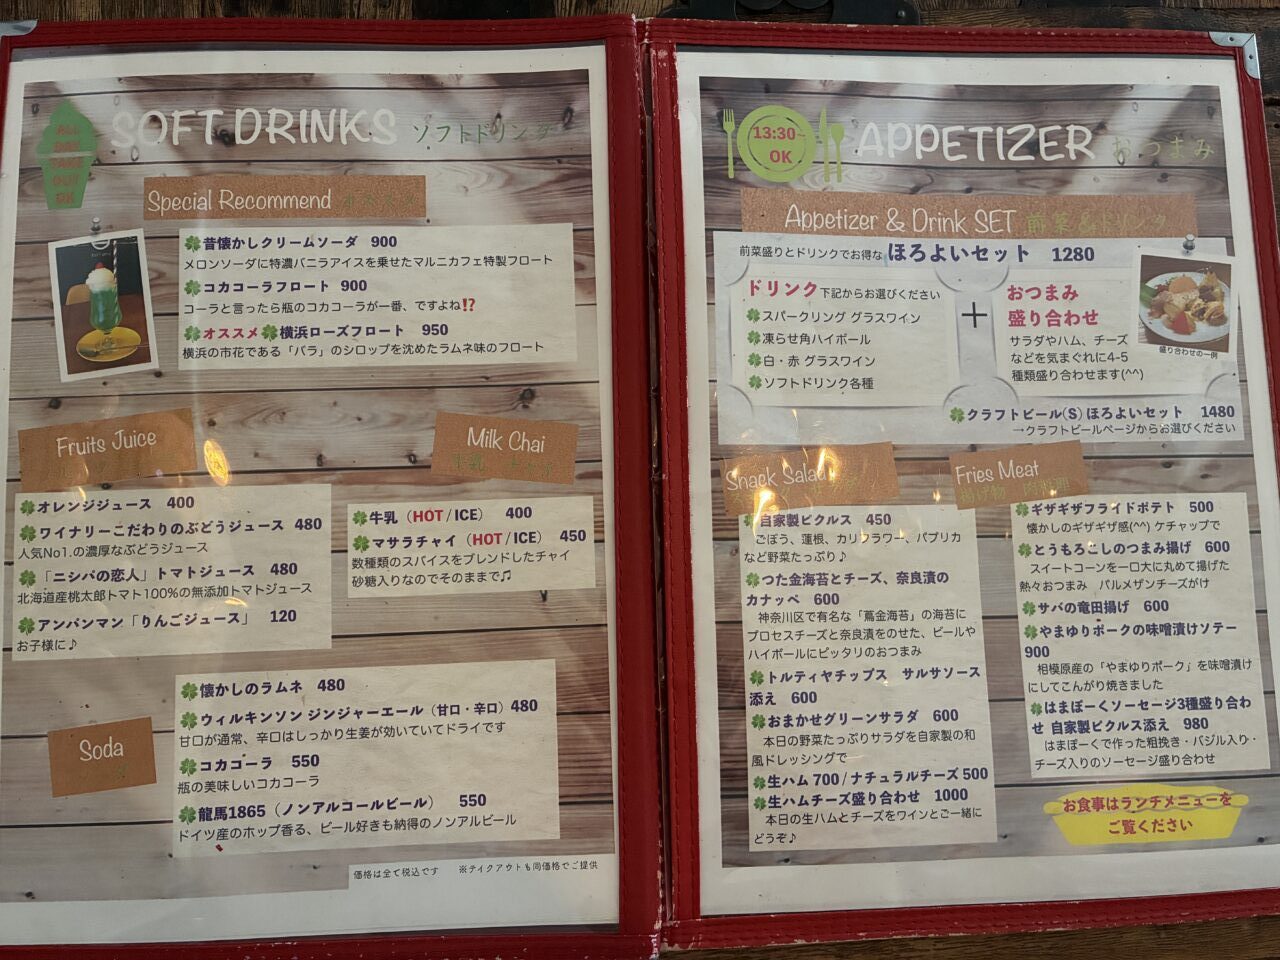 ALL
DAY
TAKE
OUT
OK
SOFT DRINKS ソフトドリンク
Special Recommend オススメ
昔懐かしクリームソーダ 900
メロンソーダに特濃バニラアイスを乗せたマルニカフェ特製フロート
コカコーラフロート 900
コーラと言ったら瓶のコカコーラが一番、ですよね⁉
オススメ 横浜ローズフロート 950
横浜の市花である「バラ」のシロップを沈めたラムネ味のフロート
Fruits Juice
オレンジジュース 400
ワイナリーこだわりのぶどうジュース 480
人気No1.の濃厚なぶどうジュース
「ニシパの恋人」トマトジュース 480
北海道産桃太郎トマト100%の無添加トマトジュース
アンパンマン「りんごジュース」 120
お子様に♪
Milk Chai
牛乳
牛乳（HOT/ICE） 400
マサラチャイ（HOT/ICE） 450
数種類のスパイスをブレンドしたチャイ
砂糖入りなのでそのままで♫
Soda
懐かしのラムネ 480
ウィルキンソン ジンジャーエール（甘口・辛口）480
甘口が通常、辛口はしっかり生姜が効いていてドライです
コカコーラ 550
瓶の美味しいコカコーラ
龍馬1865（ノンアルコールビール） 550
ドイツ産のホップ香る、ビール好きも納得のノンアルビール
価格は全て税込です ※テイクアウトも同価格でご提供
13:30~
OK
APPETIZER おつまみ
Appetizer & Drink SET 前菜&ドリンク
前菜盛りとドリンクでお得な ほろよいセット 1280
ドリンク下記からお選びください
スパークリング グラスワイン
凍らせ角ハイボール
白・赤 グラスワイン
ソフトドリンク各種
＋
おつまみ
盛り合わせ
サラダやハム、チーズ
などを気まぐれに4-5
種類盛り合わせます(^^)
盛り合わせの一例
クラフトビール(S) ほろよいセット 1480
→クラフトビールページからお選びください
Snack Salad
自家製ピクルス 450
ごぼう、蓮根、カリフラワー、パプリカ
など野菜たっぷり♪
つた金海苔とチーズ、奈良漬の
カナッペ 600
神奈川区で有名な「蔦金海苔」の海苔に
プロセスチーズと奈良漬をのせた、ビールや
ハイボールにピッタリのおつまみ
トルティヤチップス サルサソース
添え 600
おまかせグリーンサラダ 600
本日の野菜たっぷりサラダを自家製の和
風ドレッシングで
生ハム 700 / ナチュラルチーズ 500
生ハムチーズ盛り合わせ 1000
本日の生ハムとチーズをワインとご一緒に
どうぞ♪
Fries Meat
揚げ物 肉料理
ギザギザフライドポテト 500
懐かしのギザギザ感(^^) ケチャップで
とうもろこしのつまみ揚げ 600
スイートコーンを一口大に丸めて揚げた
熱々おつまみ パルメザンチーズがけ
サバの竜田揚げ 600
やまゆりポークの味噌漬けソテー
900
相模原産の「やまゆりポーク」を味噌漬け
にしてこんがり焼きました
はまぽーくソーセージ3種盛り合わ
せ 自家製ピクルス添え 980
はまぽーくで作った粗挽き・バジル入り・
チーズ入りのソーセージ盛り合わせ
お食事はランチメニューを
ご覧ください